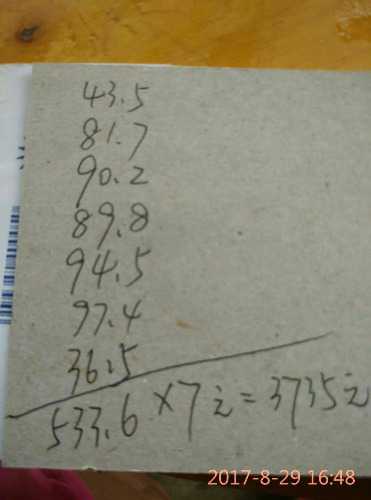 43.5
81.7
90.2
89.8
94.5
97.4
36.5
533.6×7元=3735元
2017-8-29 16:48